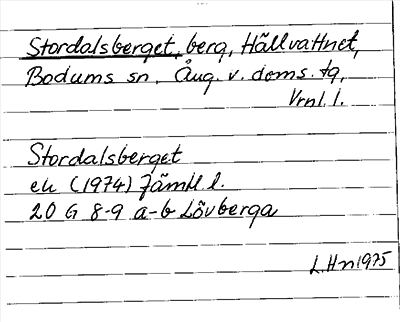 Stordalsberget, berg, Hällvattnet,
Bodums sn. Ång. v. doms. tg,
Vrnl. l.
Stordalsberget
ek (1974) Jämtl l.
20 G 8-9 a-b Lövberga
L.Hn 1975